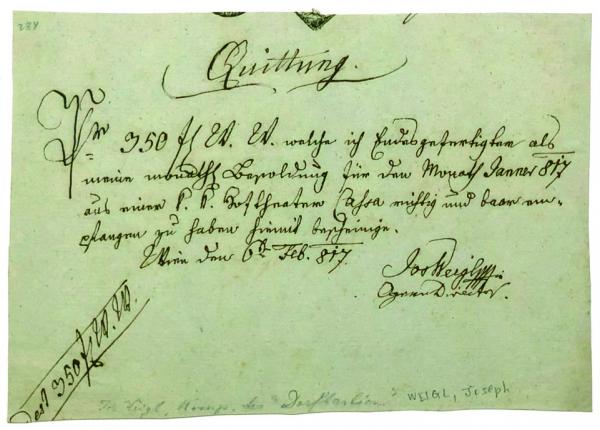 284
Quittung.
Pr 350 fl W. W. welche ich Endesgefertigter als
meine monathl Besoldung für den Monath Janner 817
aus einer k. k. Hoftheater Cassa richtig und baar em-
pfangen zu haben hiemit bescheinige.
Wien den 6t Feb. 817.
Jos Weigl
Opern Director.
350 fl W. W.
Jos Weigl, Komp. des "
WEIGL, Joseph